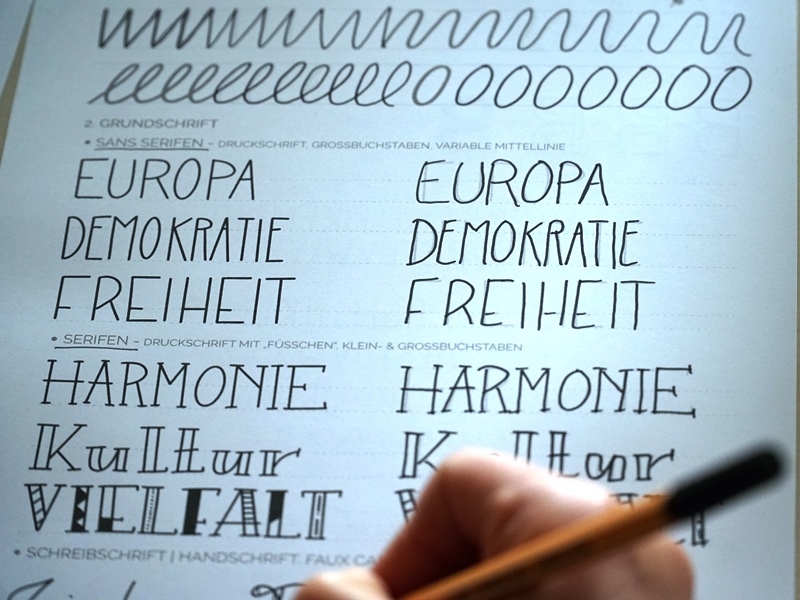 2. GRUNDSCHRIFT
• SANS SERIFEN - DRUCKSCHRIFT, GROSSBUCHSTABEN, VARIABLE MITTELLINIE
EUROPA EUROPA
DEMOKRATIE DEMOKRATIE
FREIHEIT FREIHEIT
• SERIFEN - DRUCKSCHRIFT MIT „FÜSSCHEN“, KLEIN- & GROSSBUCHSTABEN
HARMONIE HARMONIE
Kultur
VIELFALT
• SCHREIBSCHRIFT | HANDSCHRIFT, FAUX